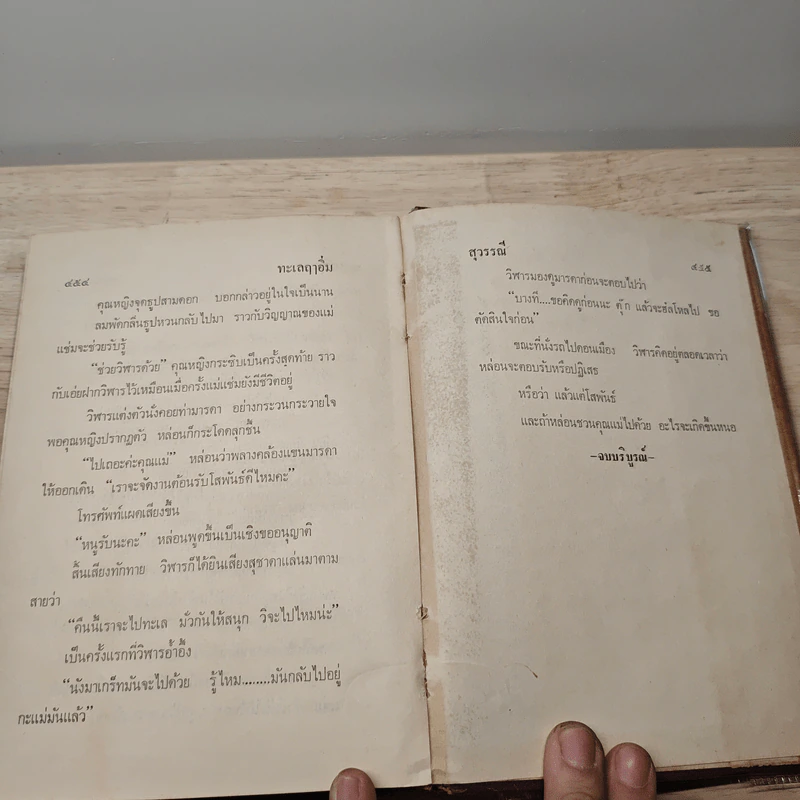 ๔๕๔
ทะเลฤๅอิ่ม
คุณหญิงจุดธูปสามดอก บอกกล่าวอยู่ในใจเป็นนาน
ลมพัดกลิ่นธูปหวนกลับไปมา ราวกับวิญญาณของแม่
แช่มจะช่วยรับรู้
“ช่วยวิหารด้วย” คุณหญิงกระซิบเป็นครั้งสุดท้าย ราว
กับเอ่ยฝากวิหารไว้เหมือนเมื่อครั้งแม่แช่มยังมีชีวิตอยู่
วิหารแต่งตัวนั่งคอยท่ามารดา อย่างกระวนกระวายใจ
พอคุณหญิงปรากฏตัว หล่อนก็กระโดดลุกขึ้น
“ไปเถอะค่ะคุณแม่” หล่อนว่าพลางคล้องแขนมารดา
ให้ออกเดิน “เราจะจัดงานต้อนรับโสพันธ์ดีไหมคะ”
โทรศัพท์แผดเสียงขึ้น
“หนูรับนะคะ” หล่อนพูดขึ้นเป็นเชิงขออนุญาติ
สิ้นเสียงทักทาย วิหารก็ได้ยินเสียงสุชาดาแล่นมาตาม
สายว่า
“คืนนี้เราจะไปทะเล มั่วกันให้สนุก วิจะไปไหมน่ะ”
เป็นครั้งแรกที่วิหารอ้ำอึ้ง
“นังมาเกร็ทมันจะไปด้วย รู้ไหม........มันกลับไปอยู่
กะแม่มันแล้ว”
สุวรรณี
๔๕๕
วิหารมองดูมารดาก่อนจะตอบไปว่า
“บางที....ขอคิดดูก่อนนะ ตุ๊ก แล้วจะฮัลโหลไป ขอ
ตัดสินใจก่อน”
ขณะที่นั่งรถไปดอนเมือง วิหารคิดอยู่ตลอดเวลาว่า
หล่อนจะตอบรับหรือปฏิเสธ
หรือว่า แล้วแต่โสพันธ์
และถ้าหล่อนชวนคุณแม่ไปด้วย อะไรจะเกิดขึ้นหนอ
–จบบริบูรณ์–